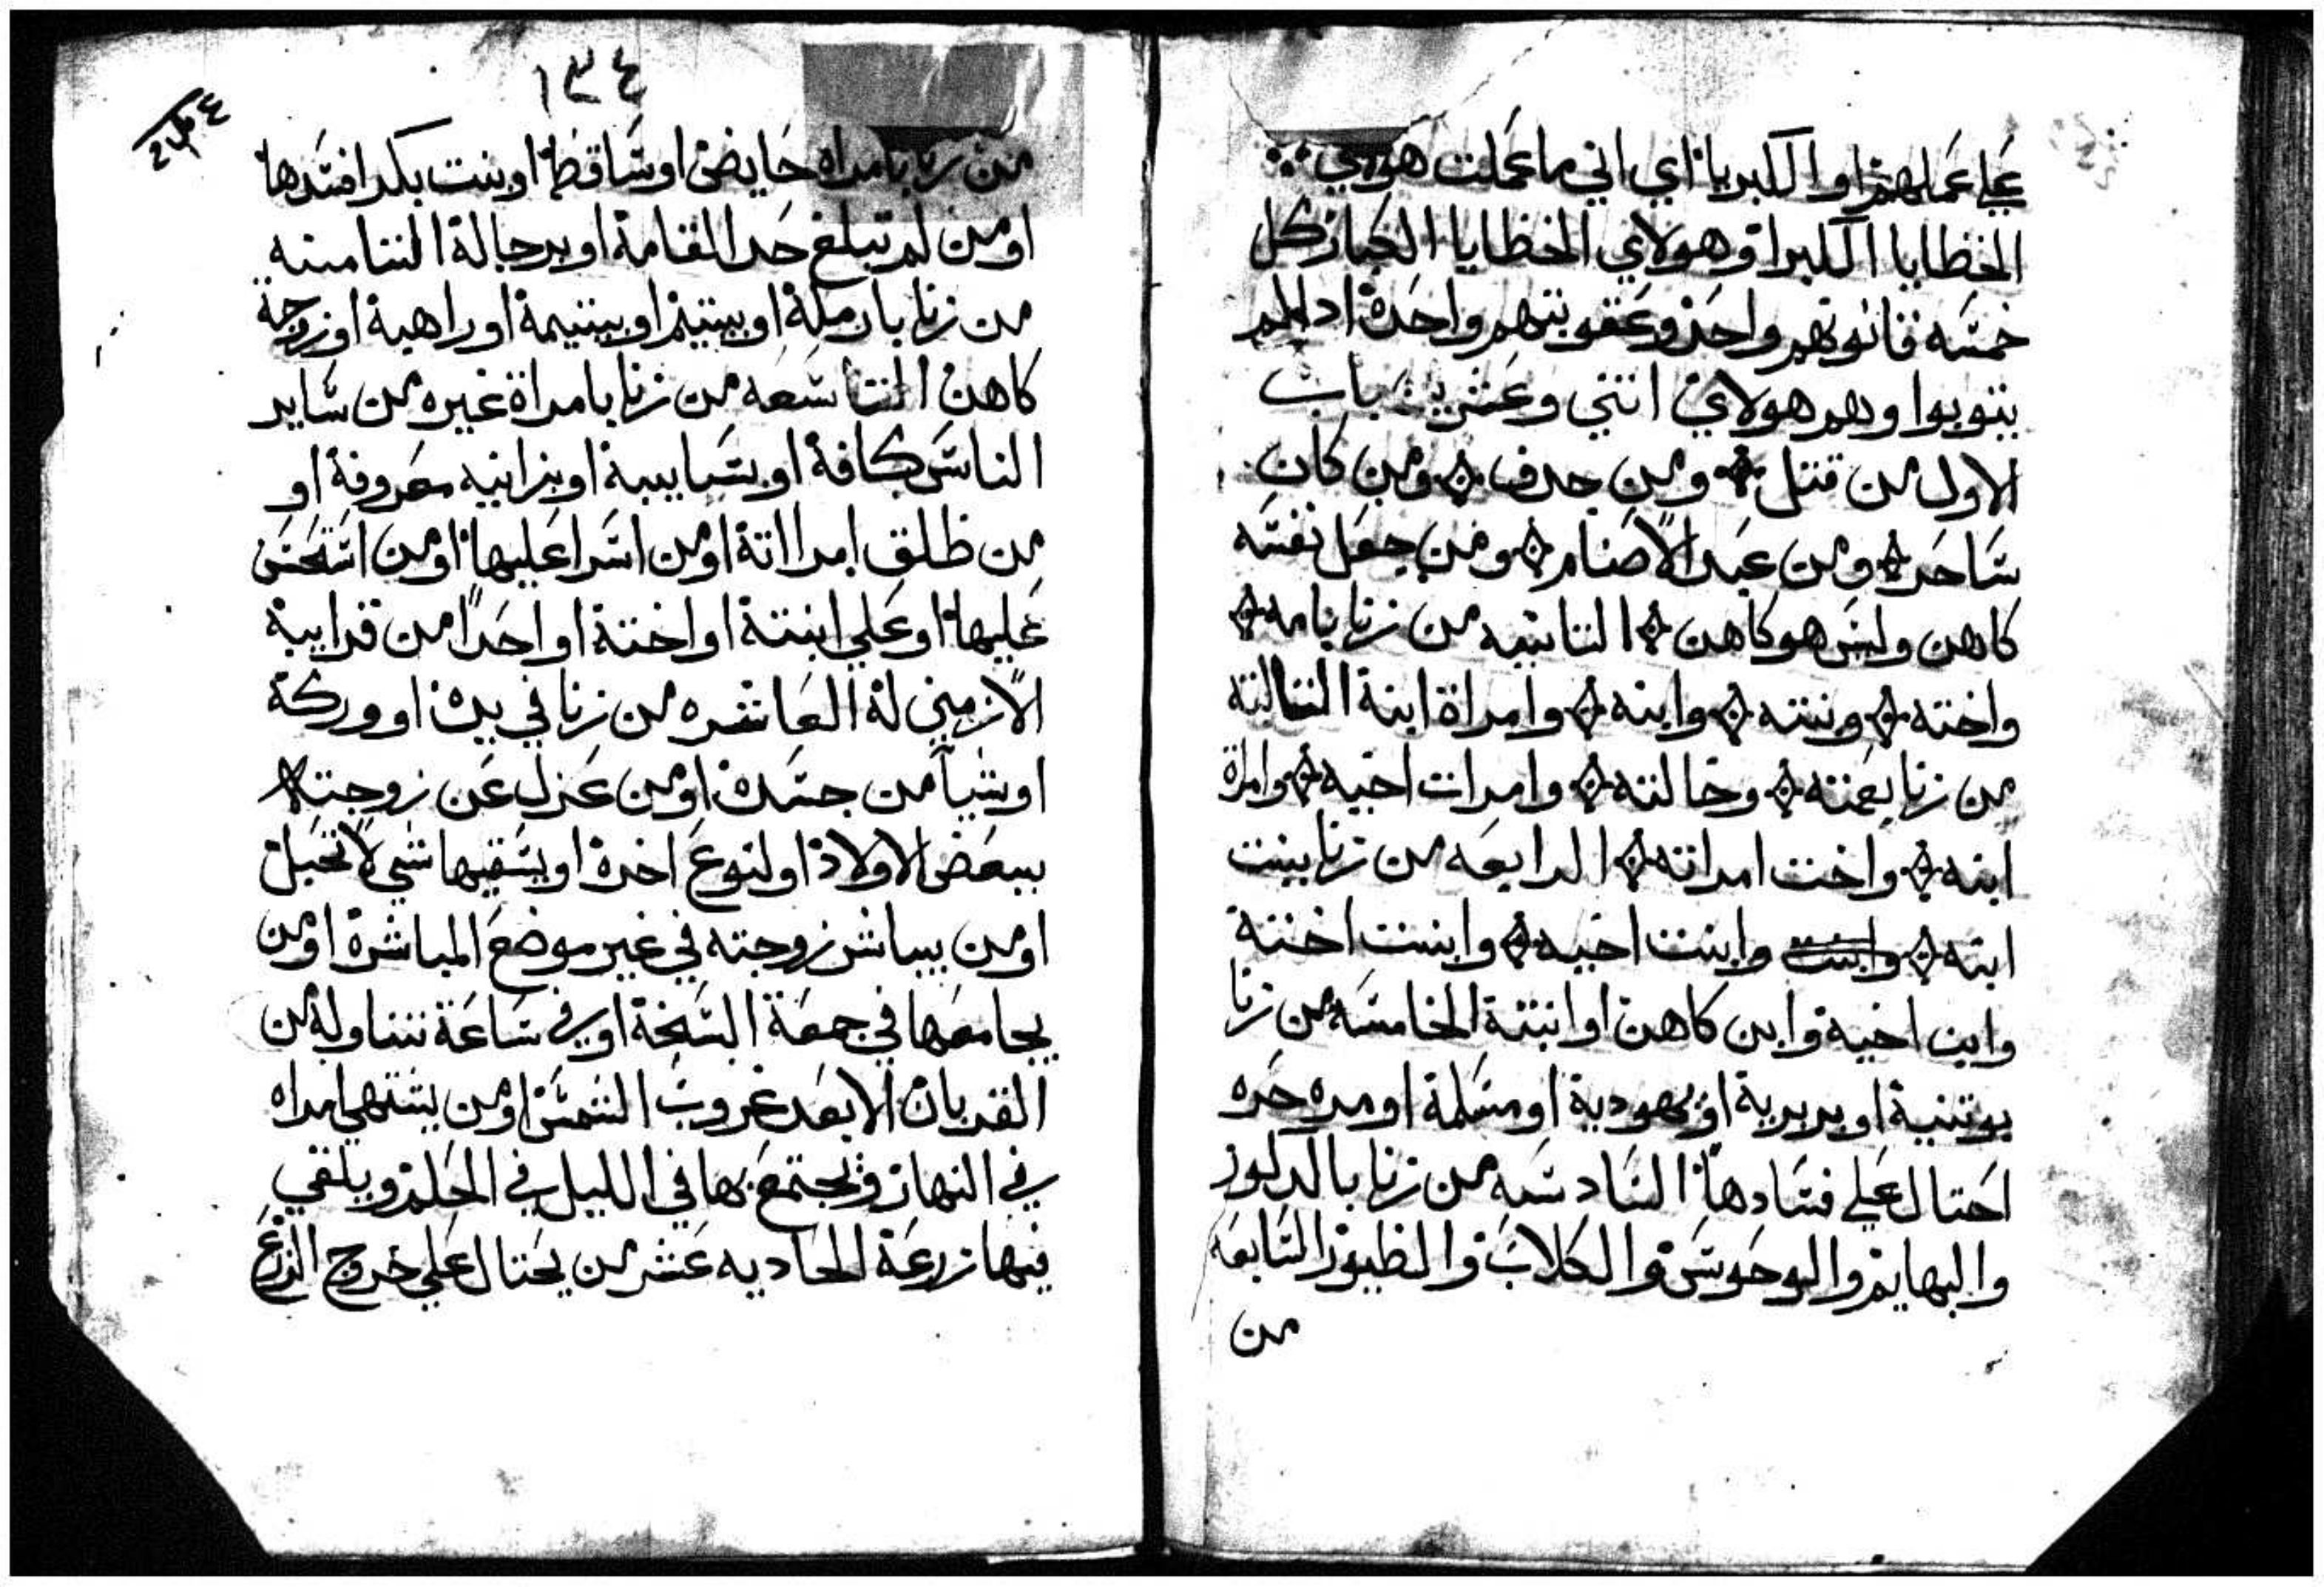 علي عملهم او الكبريا اي اني ما عملت هولاي
الخطايا الكبرا وهولاي الخطايا الكبار كل
خمسه قانونهم واحد وعقوبتهم واحدة ادا لم
يتوبوا وهم هولاي اتني وعشرين باب
الاول من قتل ومن جدف ومن كان
ساحر ومن عبد الاصنام ومن جعل نفسه
كاهن وليس هو كاهن التانيه من زنا بامه
واخته وبنته وابنه وامراة ابنة التالته
من زنا بعمته وخالته وامرات اخيه وامراة
ابنه واخت امراته الرابعه من زنا ببنت
ابنه وابنت اخيه وابنت اختة
وابن اخية وابن كاهن او ابنتة الخامسه من زنا
بوتنية او بربرية او يهودية او مسلمة او مره حره
احتال علي فسادها السادسه من زنا بالدكور
والبهايم والوحوش والكلاب والطيور السابعه
من
١٣٤
من زنا بامراه حايض او ساقط او بنت بكر افسدها
او من لم تبلغ حد القامة او برجالة التامنه
من زنا بارملة او بيتيم او بيتيمة او راهبة او زوجة
كاهن التاسعه من زنا بامراة غيره من ساير
الناس كافة او بسبايبة او بزانيه معروفة او
من طلق امرااتة او من اسرا عليها او من استحسن
عليها او علي ابنتة او اختة او احدا من قرايبة
الازمني لة العاشره من زنا في يدة او وركة
او شيا من جسدة او من عزل عن زوجته
ببعض الاولاد او لنوع اخرة او يسقيها شي لا تحبل
او من يباشر زوجته في غير موضع المباشرة او من
يجامعها في جمعة البسخة او في ساعة تناوله من
القربان الا بعد غروب الشمس او من يشتهي امراه
في النهار ويجتمع بها في الليل في الحلم ويلقي
فيها زرعة الحاديه عشر من يحتال علي خروج الزرع